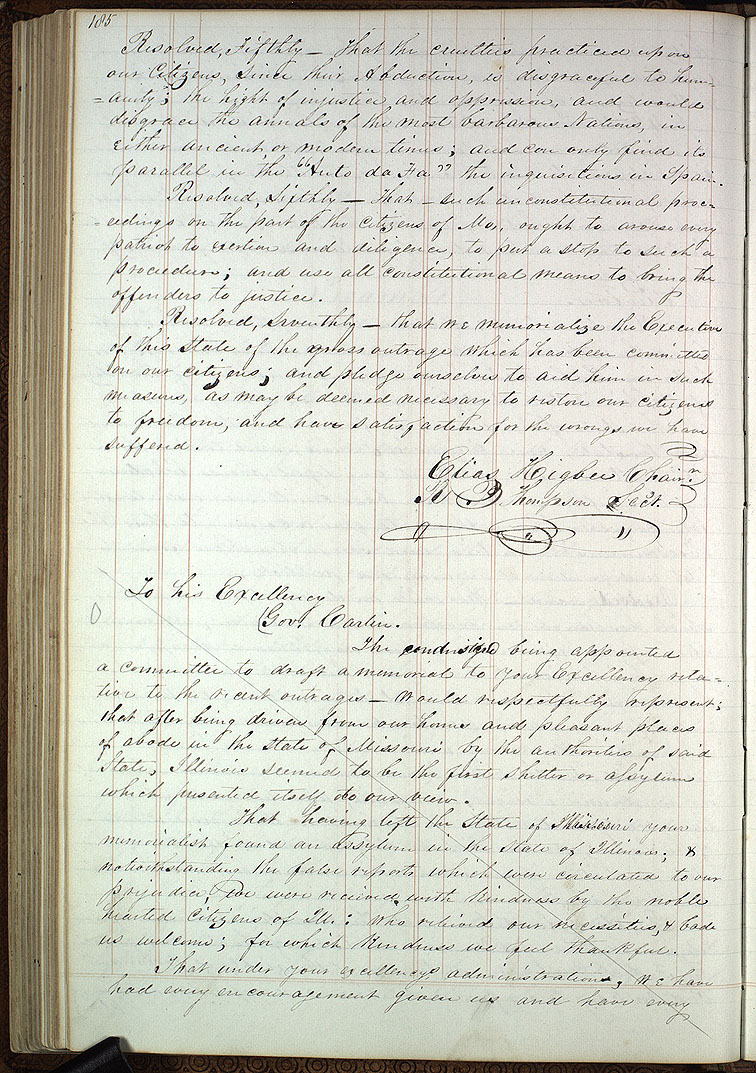 185
Resolved, Fifthly — That the cruelties practiced upon
our Citizens, since their Abduction, is disgraceful to hum-
=anity; the hight of injustice and oppression, and would
disgrace the annals of the most barbarous Nations, in
either ancient, or modern times; and can only find its
parallel in the "Auto da Fa" the inquisitions in Spain.
Resolved, Sixthly — That — such unconstitutional proc-
=eedings on the part of the citizens of Mo, ought to arouse every
patriot to exertion and diligence, to put a stop to such a
procedure; and use all constitutional means to bring the
offenders to justice.
Resolved, Seventhly — that we memorialize the Executive
of this State of the gross outrage which has been committed
on our citizens; and pledge ourselves to aid him in such
measures, as may be deemed necessary to restore our citizens
to freedom, and have satisfaction for the wrongs we have
suffered.
Elias Higbee Chairn
R. B. Thompson Sect.
To his Excellency
Gov. Carlin.
The being appointed
a committee to draft a memorial to your Excellency rela-
tive to the recent outrages — Would respectfully represent;
that after being driven from our homes and pleasant places
of abode in the State of Missouri by the authorities of said
State, Illinois seemed to be the first shelter or assylum
which presented itself to our view.
That having left the State of your
memorialist found an Assylum in the State of Illinois; &
notwithstanding the false reports which were circulated to our
prejudice, We were received with kindness by the noble
hearted Citizens of Ill: who relieved our necessities, & bade
us welcome; for which kindness we feel thankful.
That under your excellency's administration, we have
had every encouragement given us and have every